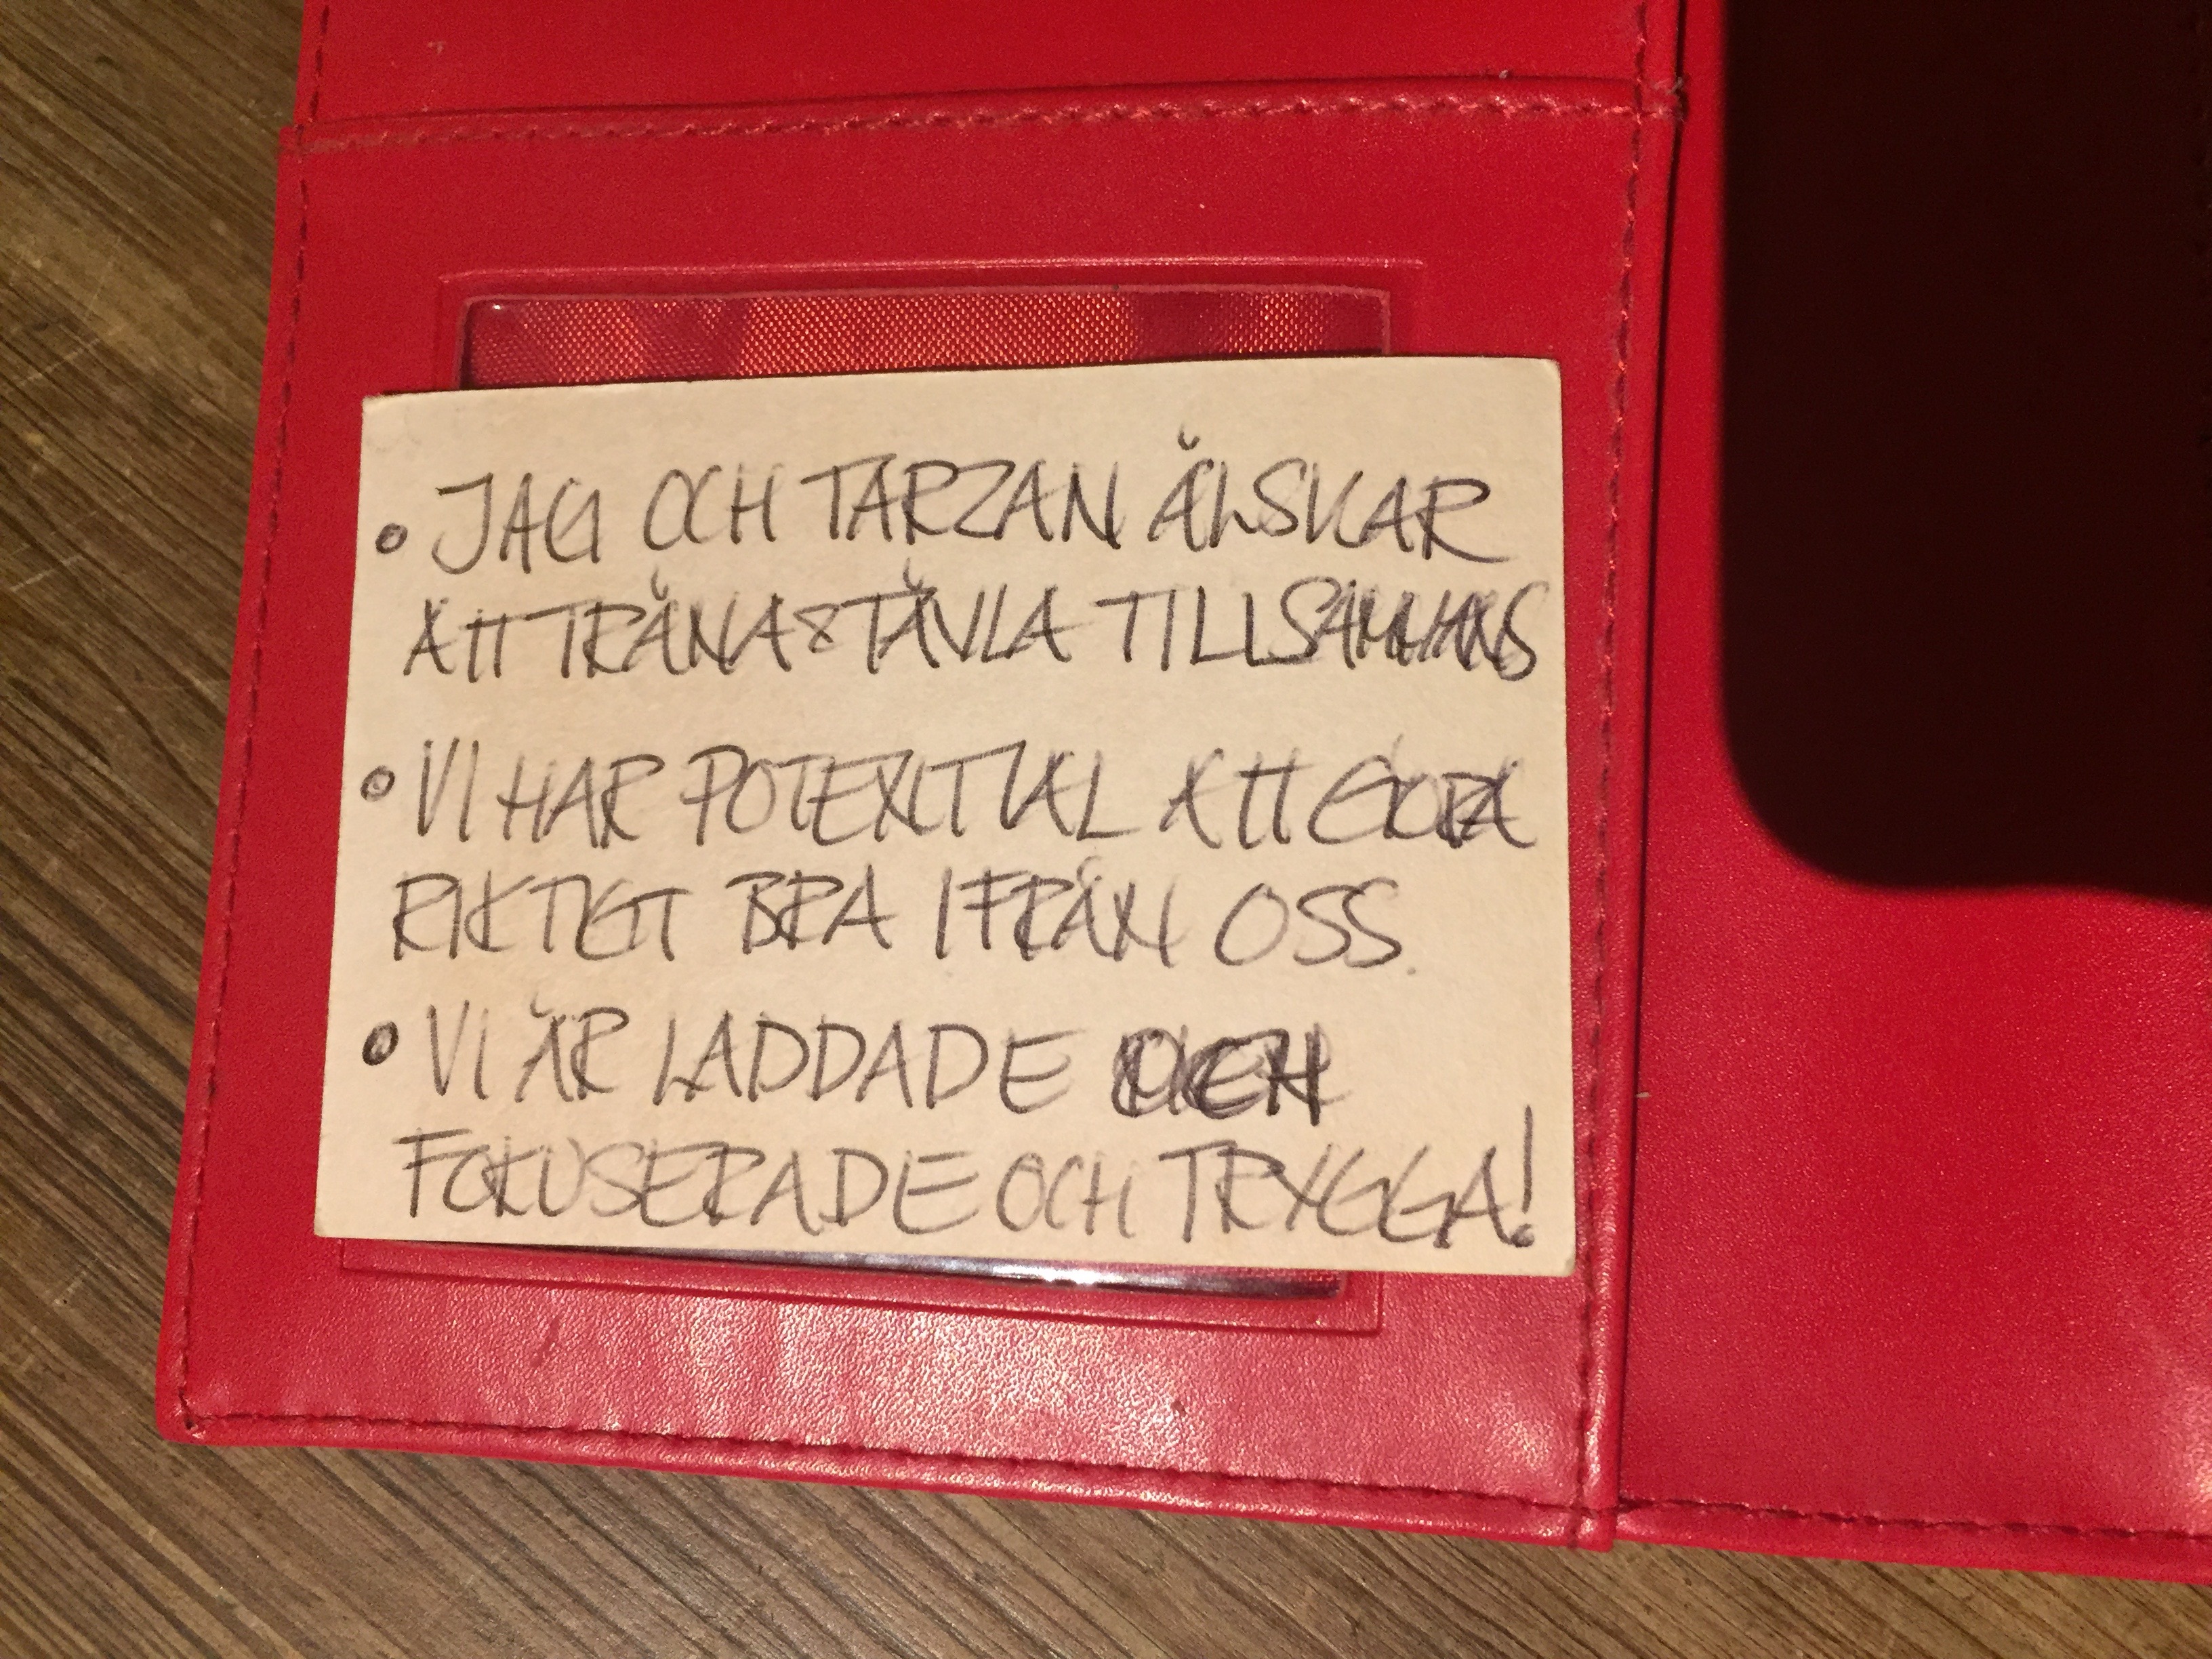 • JAG OCH TARZAN ÄLSKAR
ATT TRÄNA & TÄVLA TILLSAMMANS
• VI HAR POTENTIAL ATT GÖRA
RIKTIGT BRA IFRÅN OSS.
• VI ÄR LADDADE OCH
FOKUSERADE OCH TRYGGA!